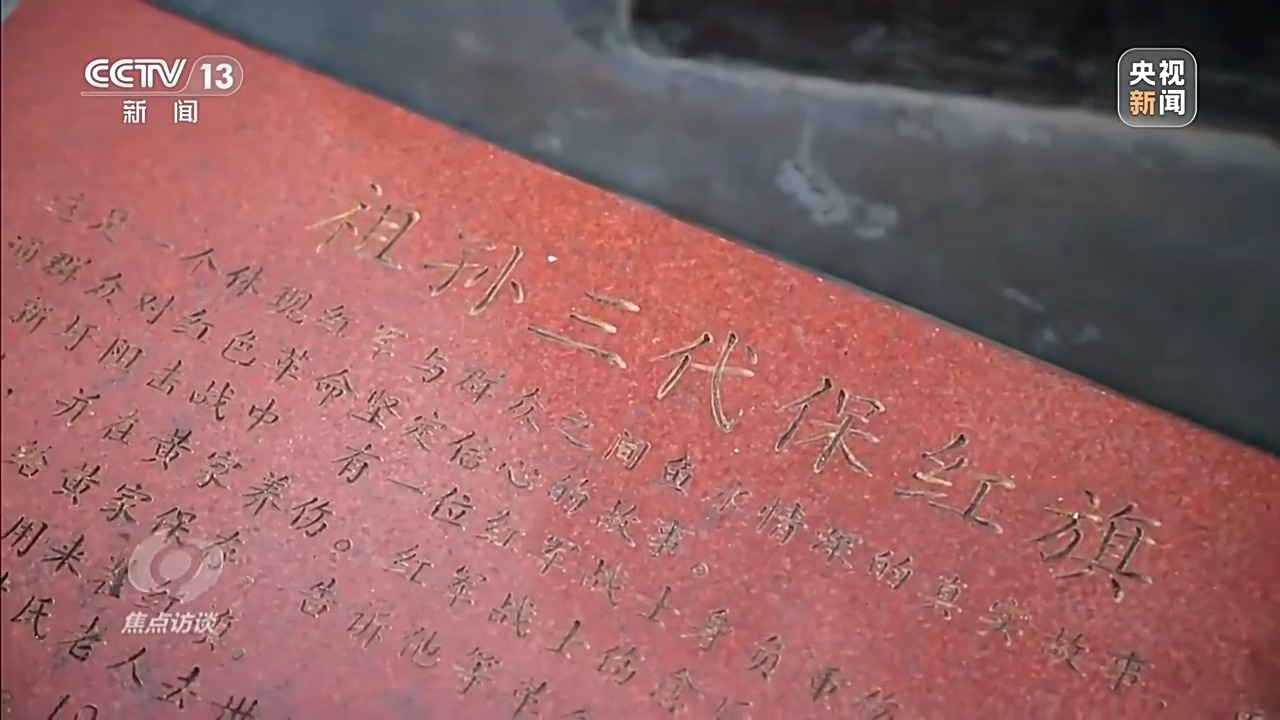 CCTV 13
新闻
央视
新闻
祖孙三代保红旗
这是一个体现红军与群众之间鱼水情深的真实故事，
群众对红色革命坚定信心的故事。
新圩阻击战中，有一位红军战士身负重伤
，并在黄家养伤。红军战士伤愈
给黄家保存，告诉他等革命
用来
氏老人去世
焦点访谈